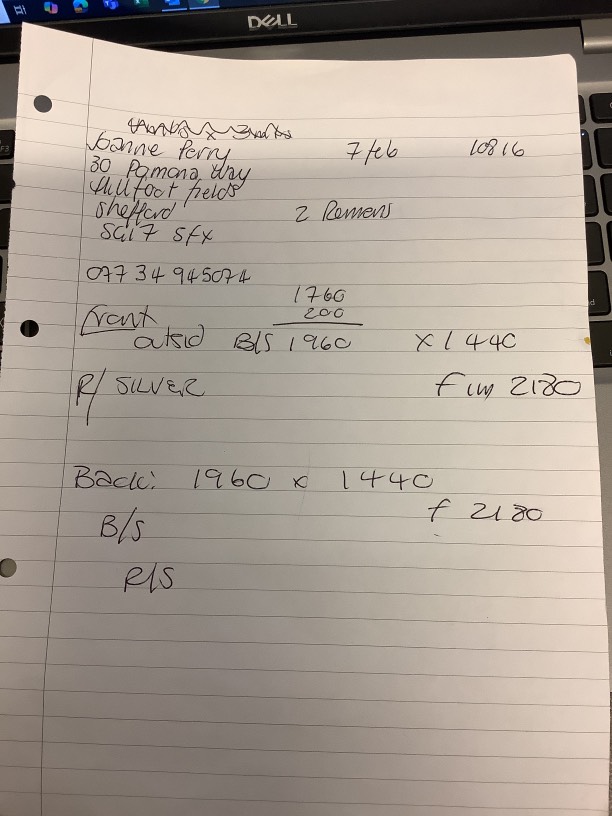 DELL
Joanne Perry 7 feb 10816
30 Pamona Way
Hillfoot fields
Shefford
SG17 5FX
2 Romans
07734 945074
1760
200
Front
outsid B/S 1960 x 1440
R/ SILVER f 2180
Back: 1960 x 1440
f 2180
B/S
R/S